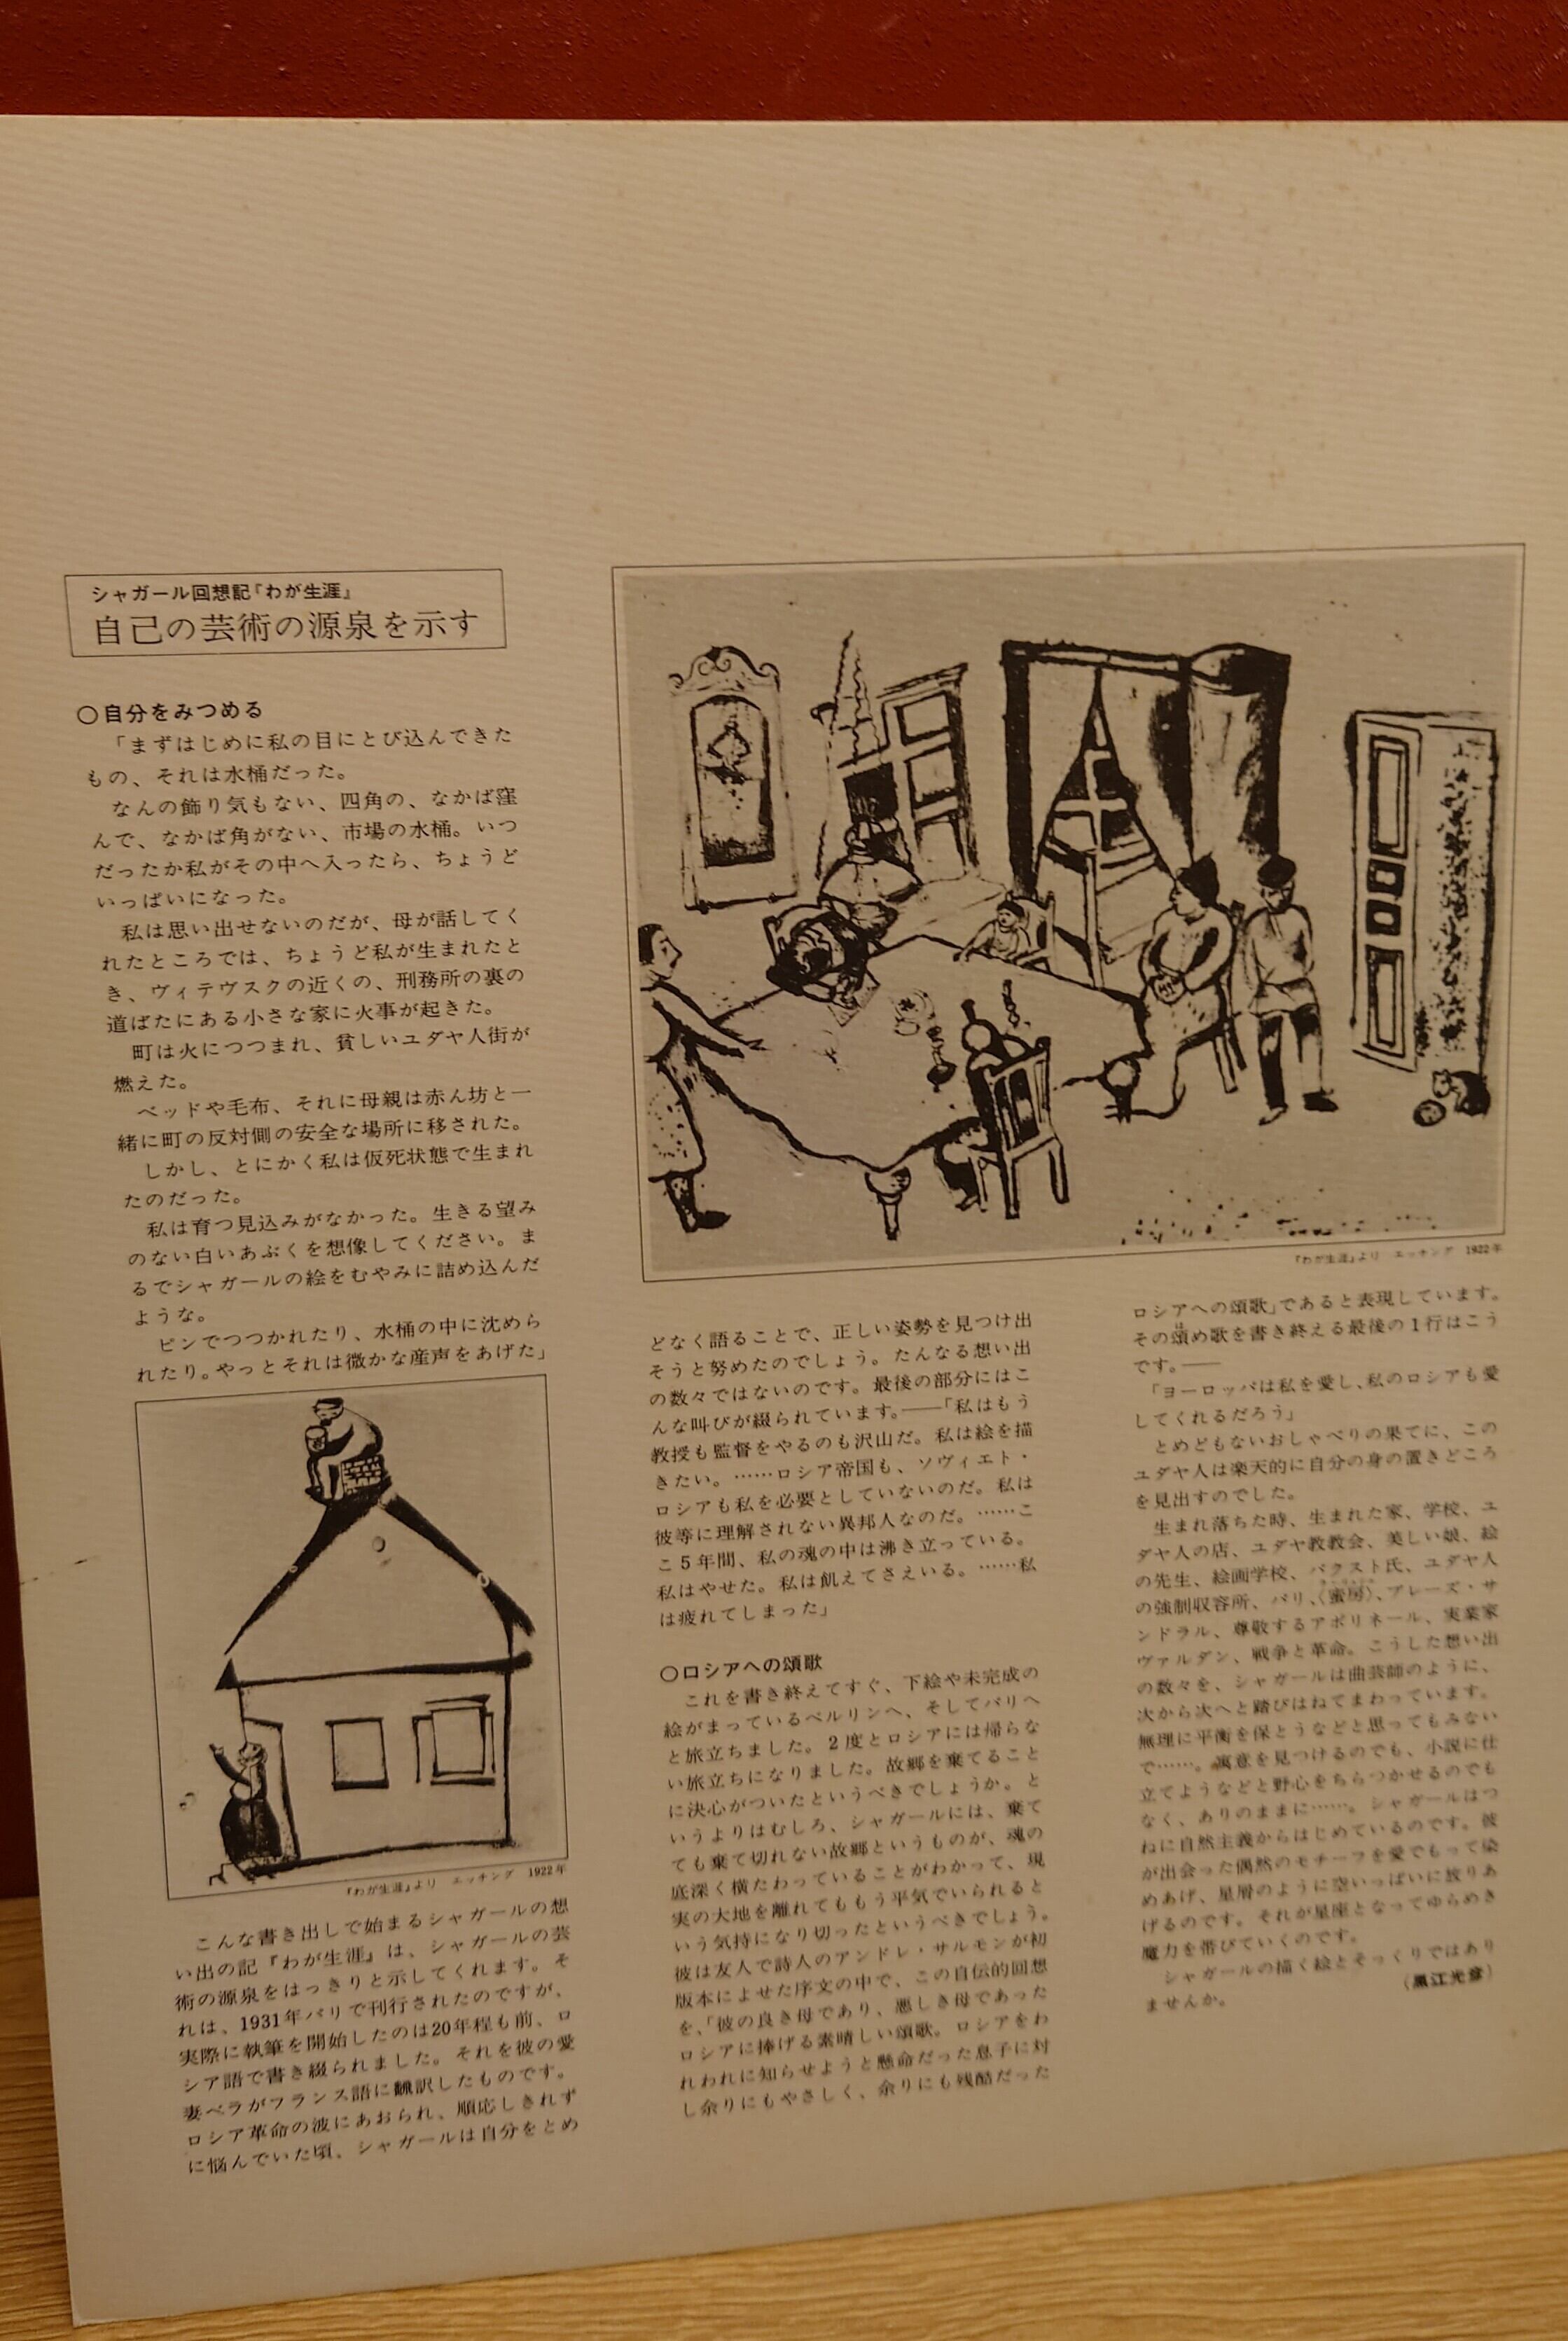 シャガール回想記『わが生涯』
自己の芸術の源泉を示す
○自分をみつめる
「まずはじめに私の目にとび込んできた
もの、それは水桶だった。
なんの飾り気もない、四角の、なかば窪
んで、なかば角がない、市場の水桶。いつ
だったか私がその中へ入ったら、ちょうど
いっぱいになった。
私は思い出せないのだが、母が話してく
れたところでは、ちょうど私が生まれたと
き、ヴィテヴスクの近くの、刑務所の裏の
道ばたにある小さな家に火事が起きた。
町は火につつまれ、貧しいユダヤ人街が
燃えた。
ベッドや毛布、それに母親は赤ん坊と一
緒に町の反対側の安全な場所に移された。
しかし、とにかく私は仮死状態で生まれ
たのだった。
私は育つ見込みがなかった。生きる望み
のない白いあぶくを想像してください。ま
るでシャガールの絵をむやみに詰め込んだ
ような。
ピンでつつかれたり、水桶の中に沈めら
れたり。やっとそれは微かな産声をあげた」
『わが生涯』より エッチング 1922年
こんな書き出しで始まるシャガールの想
い出の記『わが生涯』は、シャガールの芸
術の源泉をはっきりと示してくれます。そ
れは、1931年パリで刊行されたのですが、
実際に執筆を開始したのは20年程も前、ロ
シア語で書き綴られました。それを彼の愛
妻ベラがフランス語に飜訳したものです。
ロシア革命の波にあおられ、順応しきれず
に悩んでいた頃、シャガールは自分をとめ
『わが生涯』より エッチング 1922年
どなく語ることで、正しい姿勢を見つけ出
そうと努めたのでしょう。たんなる想い出
の数々ではないのです。最後の部分にはこ
んな叫びが綴られています。——「私はもう
教授も監督をやるのも沢山だ。私は絵を描
きたい。……ロシア帝国も、ソヴィエト・
ロシアも私を必要としていないのだ。私は
彼等に理解されない異邦人なのだ。……こ
こ5年間、私の魂の中は沸き立っている。
私はやせた。私は飢えてさえいる。……私
は疲れてしまった」
○ロシアへの頌歌
これを書き終えてすぐ、下絵や未完成の
絵がまっているベルリンへ、そしてパリへ
と旅立ちました。2度とロシアには帰らな
い旅立ちになりました。故郷を棄てること
に決心がついたというべきでしょうか。と
いうよりはむしろ、シャガールには、棄て
ても棄て切れない故郷というものが、魂の
底深く横たわっていることがわかって、現
実の大地を離れてももう平気でいられると
いう気持になり切ったというべきでしょう。
彼は友人で詩人のアンドレ・サルモンが初
版本によせた序文の中で、この自伝的回想
を、「彼の良き母であり、悪しき母であった
ロシアに捧げる素晴しい頌歌。ロシアをわ
れわれに知らせようと懸命だった息子に対
し余りにもやさしく、余りにも残酷だった
ロシアへの頌歌」であると表現しています。
その頌め歌を書き終える最後の1行はこう
です。——
「ヨーロッパは私を愛し、私のロシアも愛
してくれるだろう」
とめどもないおしゃべりの果てに、この
ユダヤ人は楽天的に自分の身の置きどころ
を見出すのでした。
生まれ落ちた時、生まれた家、学校、ユ
ダヤ人の店、ユダヤ教教会、美しい娘、絵
の先生、絵画学校、バクスト氏、ユダヤ人
の強制収容所、パリ、〈蜜房〉、ブレーズ・サ
ンドラル、尊敬するアポリネール、実業家
ヴァルダン、戦争と革命。こうした想い出
の数々を、シャガールは曲芸師のように、
次から次へと踏びはねてまわっています。
無理に平衡を保とうなどと思ってもみない
で……。寓意を見つけるのでも、小説に仕
立てようなどと野心をちらつかせるのでも
なく、ありのままに……。シャガールはつ
ねに自然主義からはじめているのです。彼
が出会った偶然のモチーフを愛でもって染
めあげ、星屑のように空いっぱいに放りあ
げるのです。それが星座となってゆらめき
魔力を帯びていくのです。
シャガールの描く絵とそっくりではあり
ませんか。
（黒江光彦）